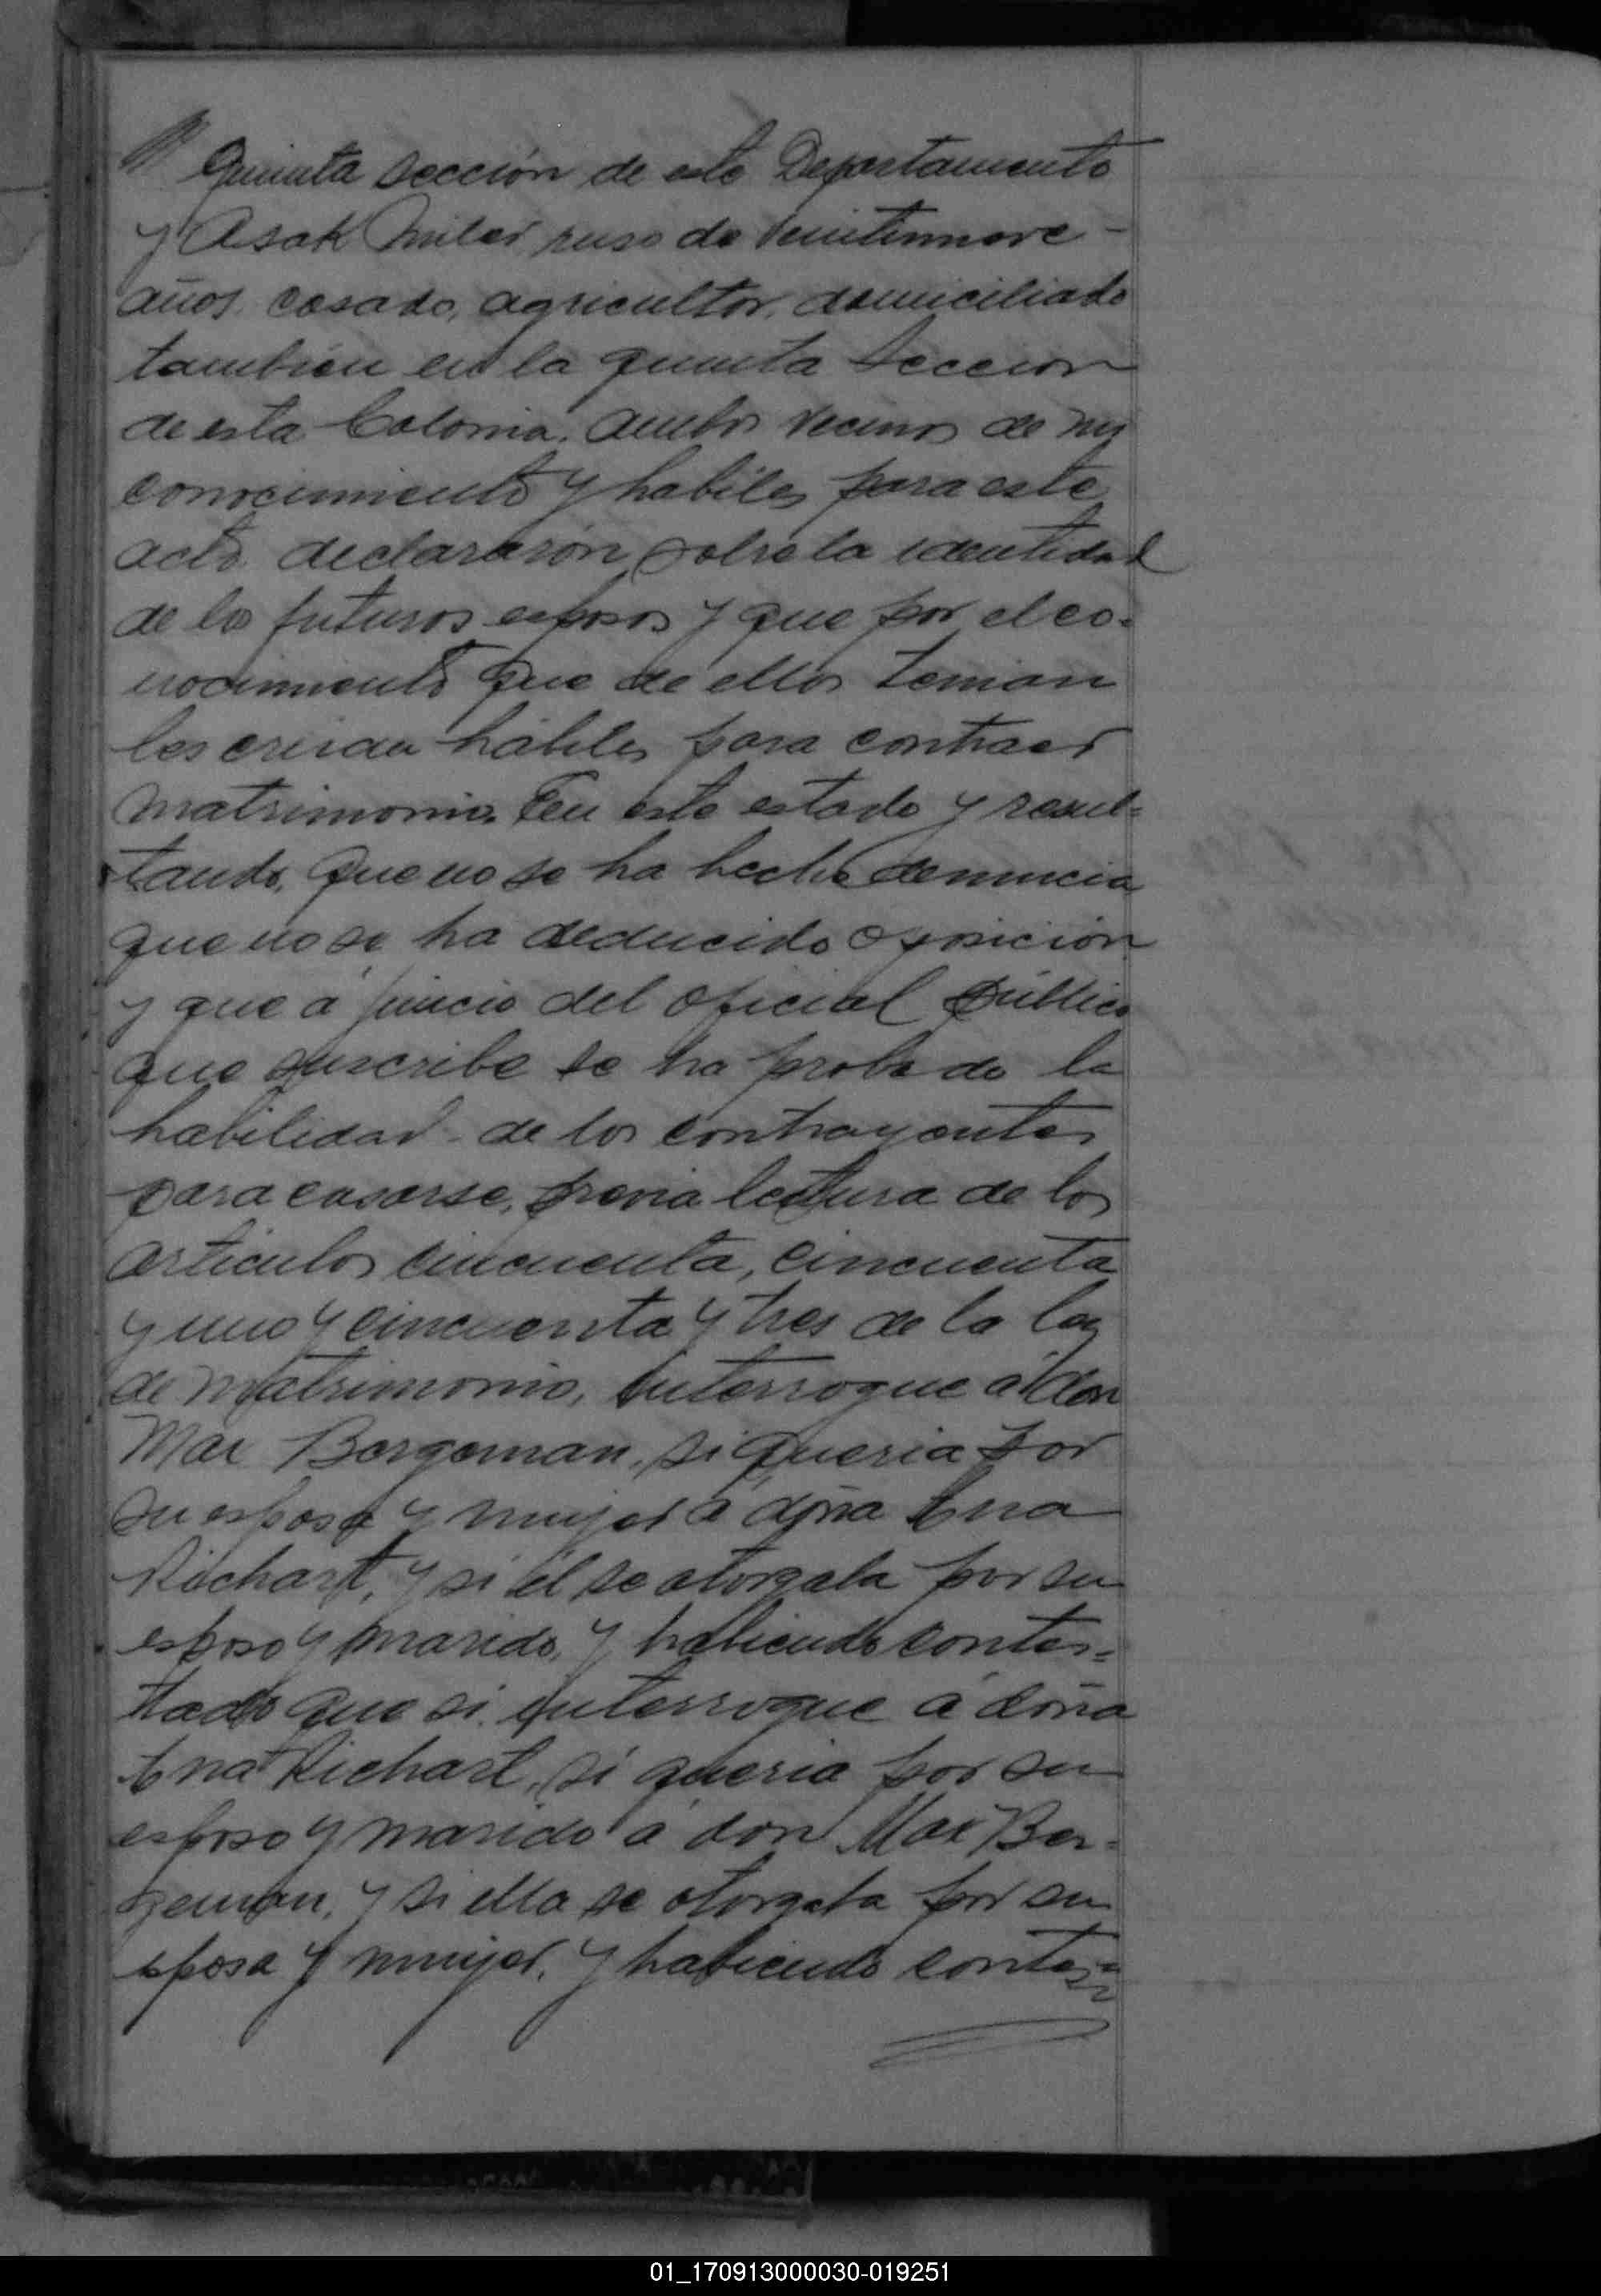 Quinta Sección de este Departamento
y Asak Miler, ruso de veintinueve
años, casado, agricultor, domiciliado
también en la quinta Sección
de esta Colonia. Ambos vecinos de mi
conocimiento y habiles para este
acto declararon sobre la identidad
de los futuros esposos y que por el co-
nocimiento que de ellos tenian
los creian hábiles para contraer
matrimonio. En este estado y resul-
tando, que no se ha hecho denuncia
que no se ha deducido oposicion
y que á juicio del oficial público
que suscribe se ha probado la
habilidad de los contrayentes
para casarse, previa lectura de los
articulos cincuenta, cincuenta
y uno y cincuenta y tres de la ley
de matrimonio, interrogue á don
Max Bergeman, si queria por
su esposa y mujer á doña Ena
Richart, y si él se otorgaba por su
esposo y marido, y habiendo contes-
tado que si, interrogue á doña
Ena Richart, si queria por su
esposo y marido á don Max Ber-
geman, y si ella se otorgaba por su
esposa y mujer, y habiendo contes-
01_170913000030-019251